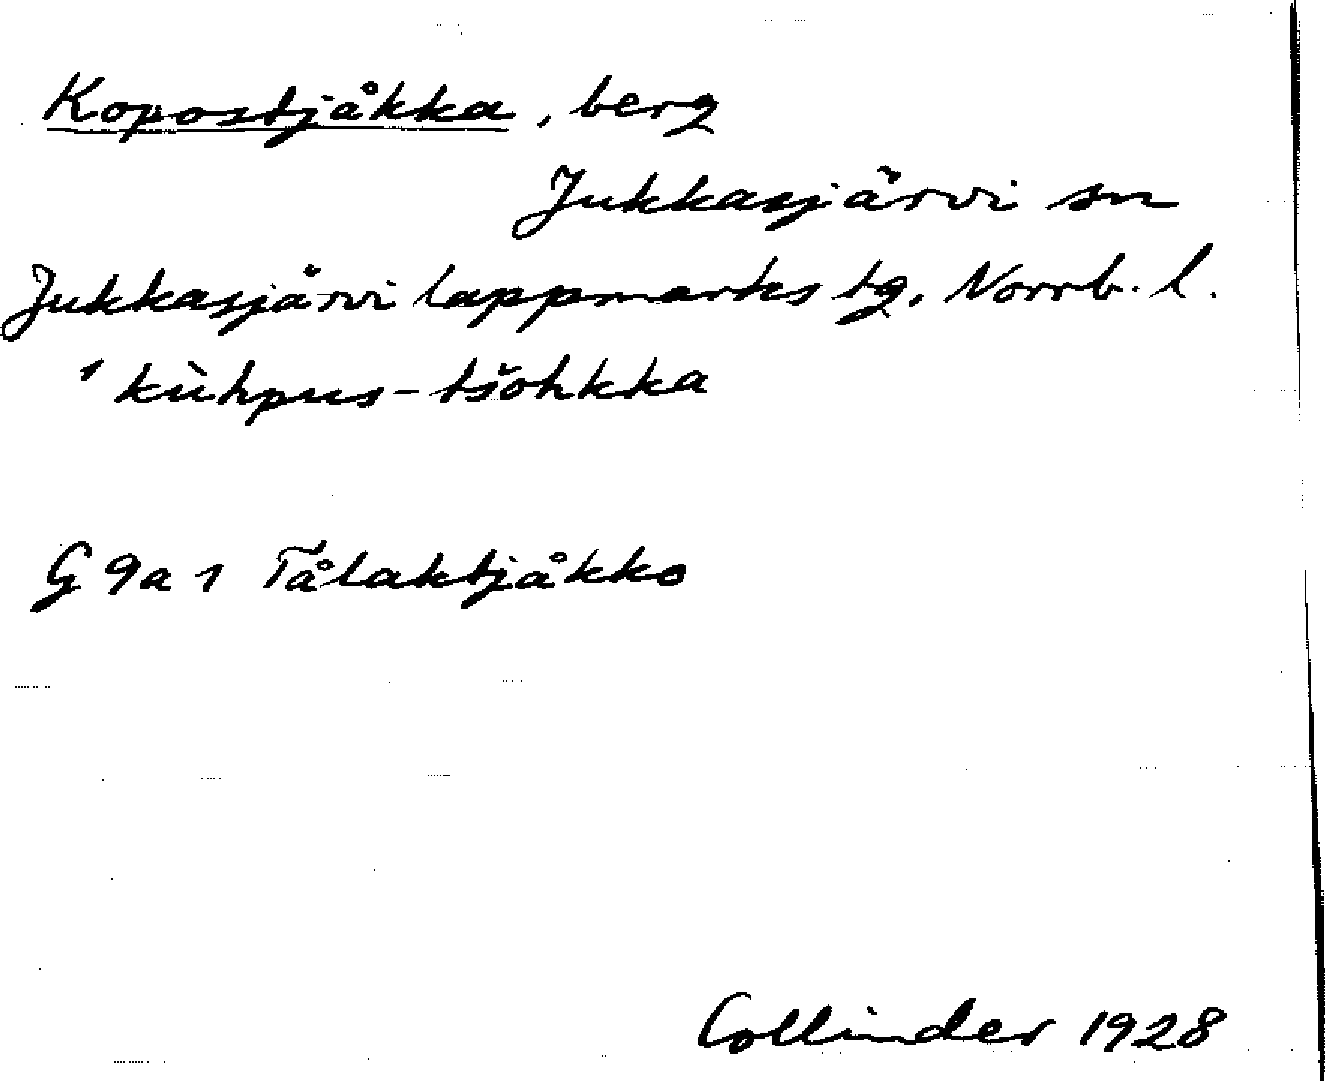 Kopostjåkka, berg
Jukkasjärvi sn
Jukkasjärvi lappmarks tg. Norrb. l.
ˈkùhpus-tšohkka
G 9a 1 Tålaktjåkko
Collinder 1928